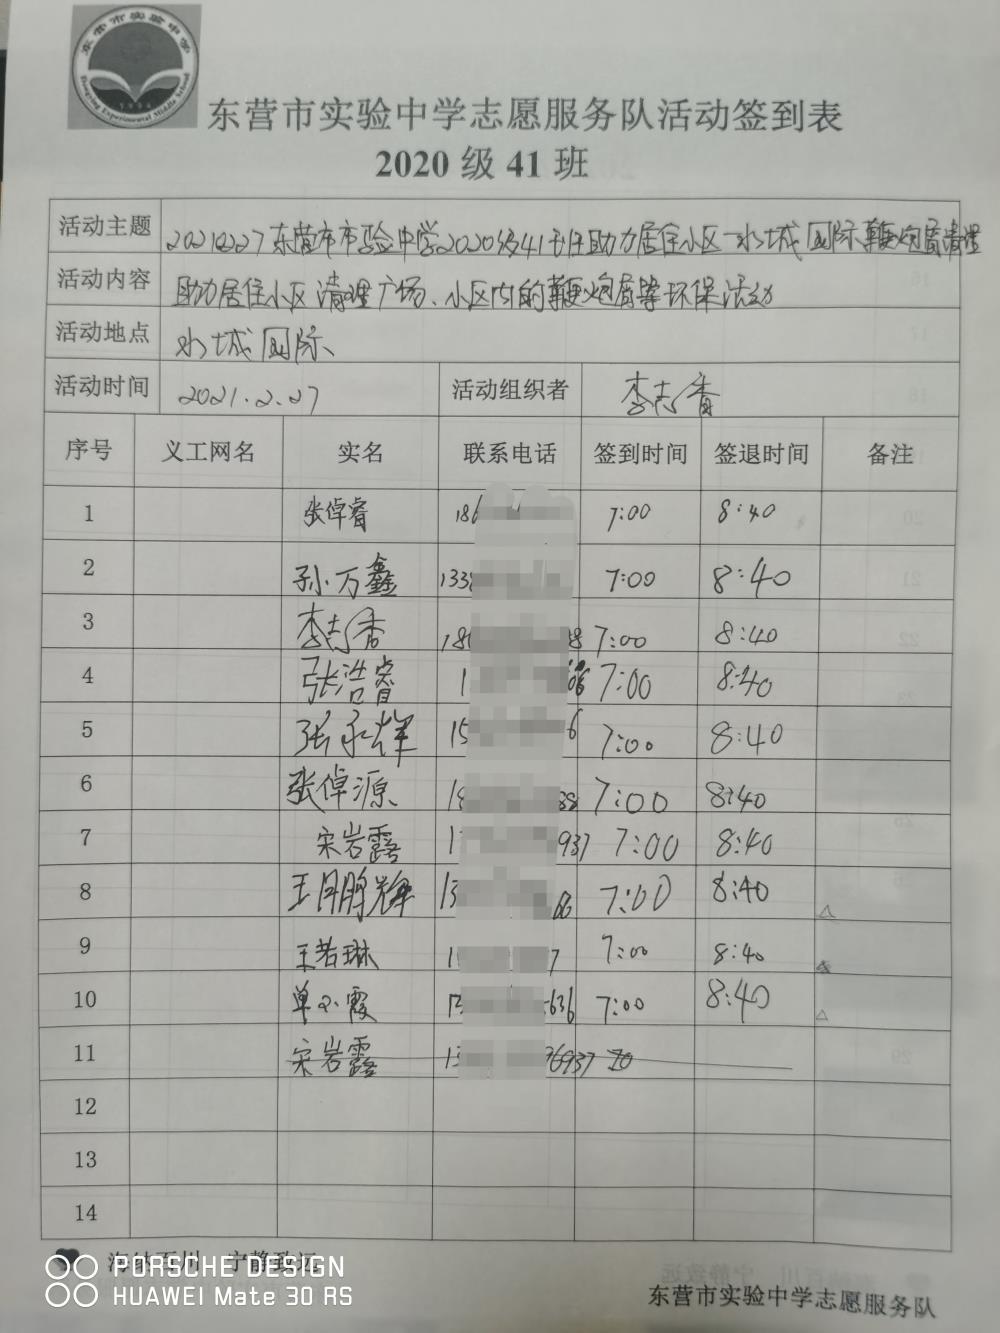 东营市实验中学
Dongying Experimental Middle School
东营市实验中学志愿服务队活动签到表
2020 级 41 班
活动主题 20210227东营市市验中学2020级41班助力居住小区-水城国际鞭炮屑清理
活动内容 助力居住小区清理广场、小区内的鞭炮屑等环保活动
活动地点 水城国际
活动时间 2021.2.27 活动组织者 李志香
序号 义工网名 实名 联系电话 签到时间 签退时间 备注
1 张倬睿 186 7:00 8:40
2 孙万鑫 133 7:00 8:40
3 李志香 18 8 7:00 8:40
4 张浩睿 1 7:00 8:40
5 张永辉 15 6 7:00 8:40
6 张倬源 1 7:00 8:40
7 宋岩露 1 937 7:00 8:40
8 王月鹏辉 13 7:00 8:40 △
9 王若琳 1 7 7:00 8:40
10 单小霞 13 636 7:00 8:40 △
11 宋岩露 13 6937 70
12
13
14
海纳百川 宁静致远
PORSCHE DESIGN
HUAWEI Mate 30 RS
东营市实验中学志愿服务队